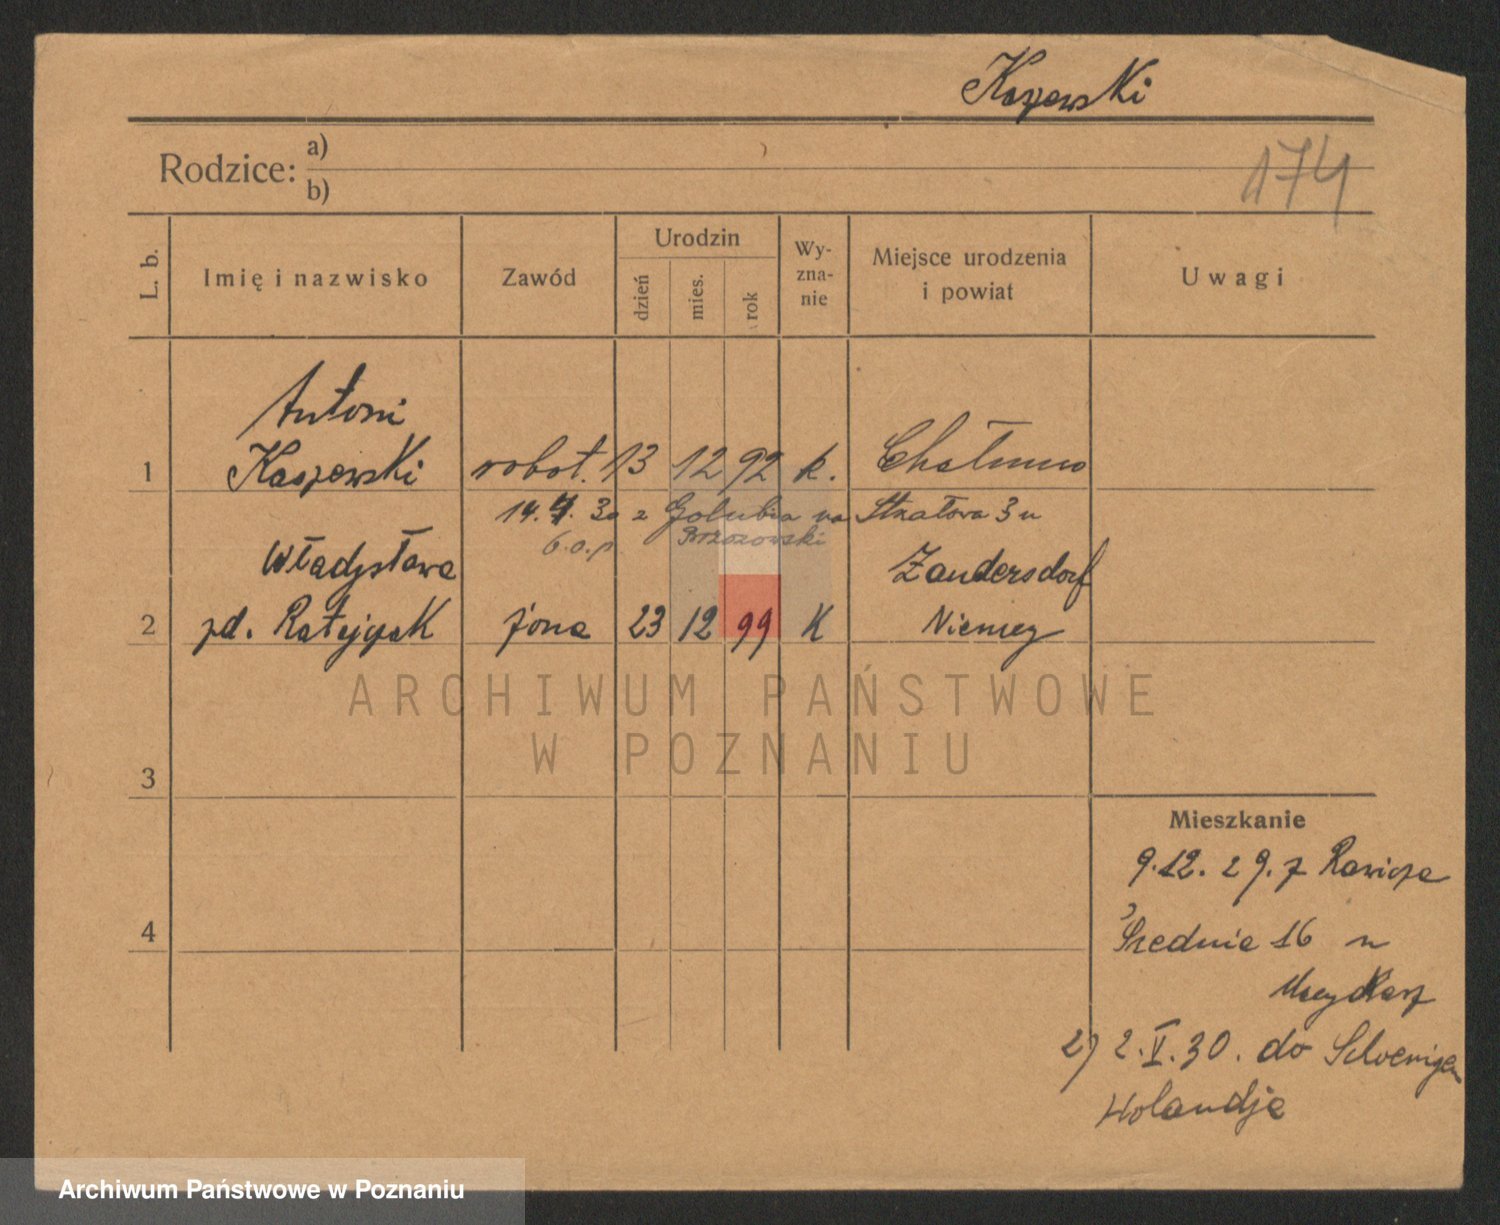 Kaszewski
174
Rodzice: a)
b)
L. b.
Imię i nazwisko
Zawód
Urodzin
dzień
mies.
rok
Wy-
zna-
nie
Miejsce urodzenia
i powiat
Uwagi
Antoni
1 Kaszewski robot. 13 12 92 k. Chełmno
14. 4. 30 z Golubia na Strzałowa 3 u
Brzozowski
Władysława Zandersdorf
2 zd. Ratajczak żona 23 12 99 K Niemcy
ARCHIWUM PAŃSTWOWE
W POZNANIU
3
Mieszkanie
9.12.29. z Rawicza
4
Średnia 16 u
2) 2.V.30. do
Holandja
Archiwum Państwowe w Poznaniu